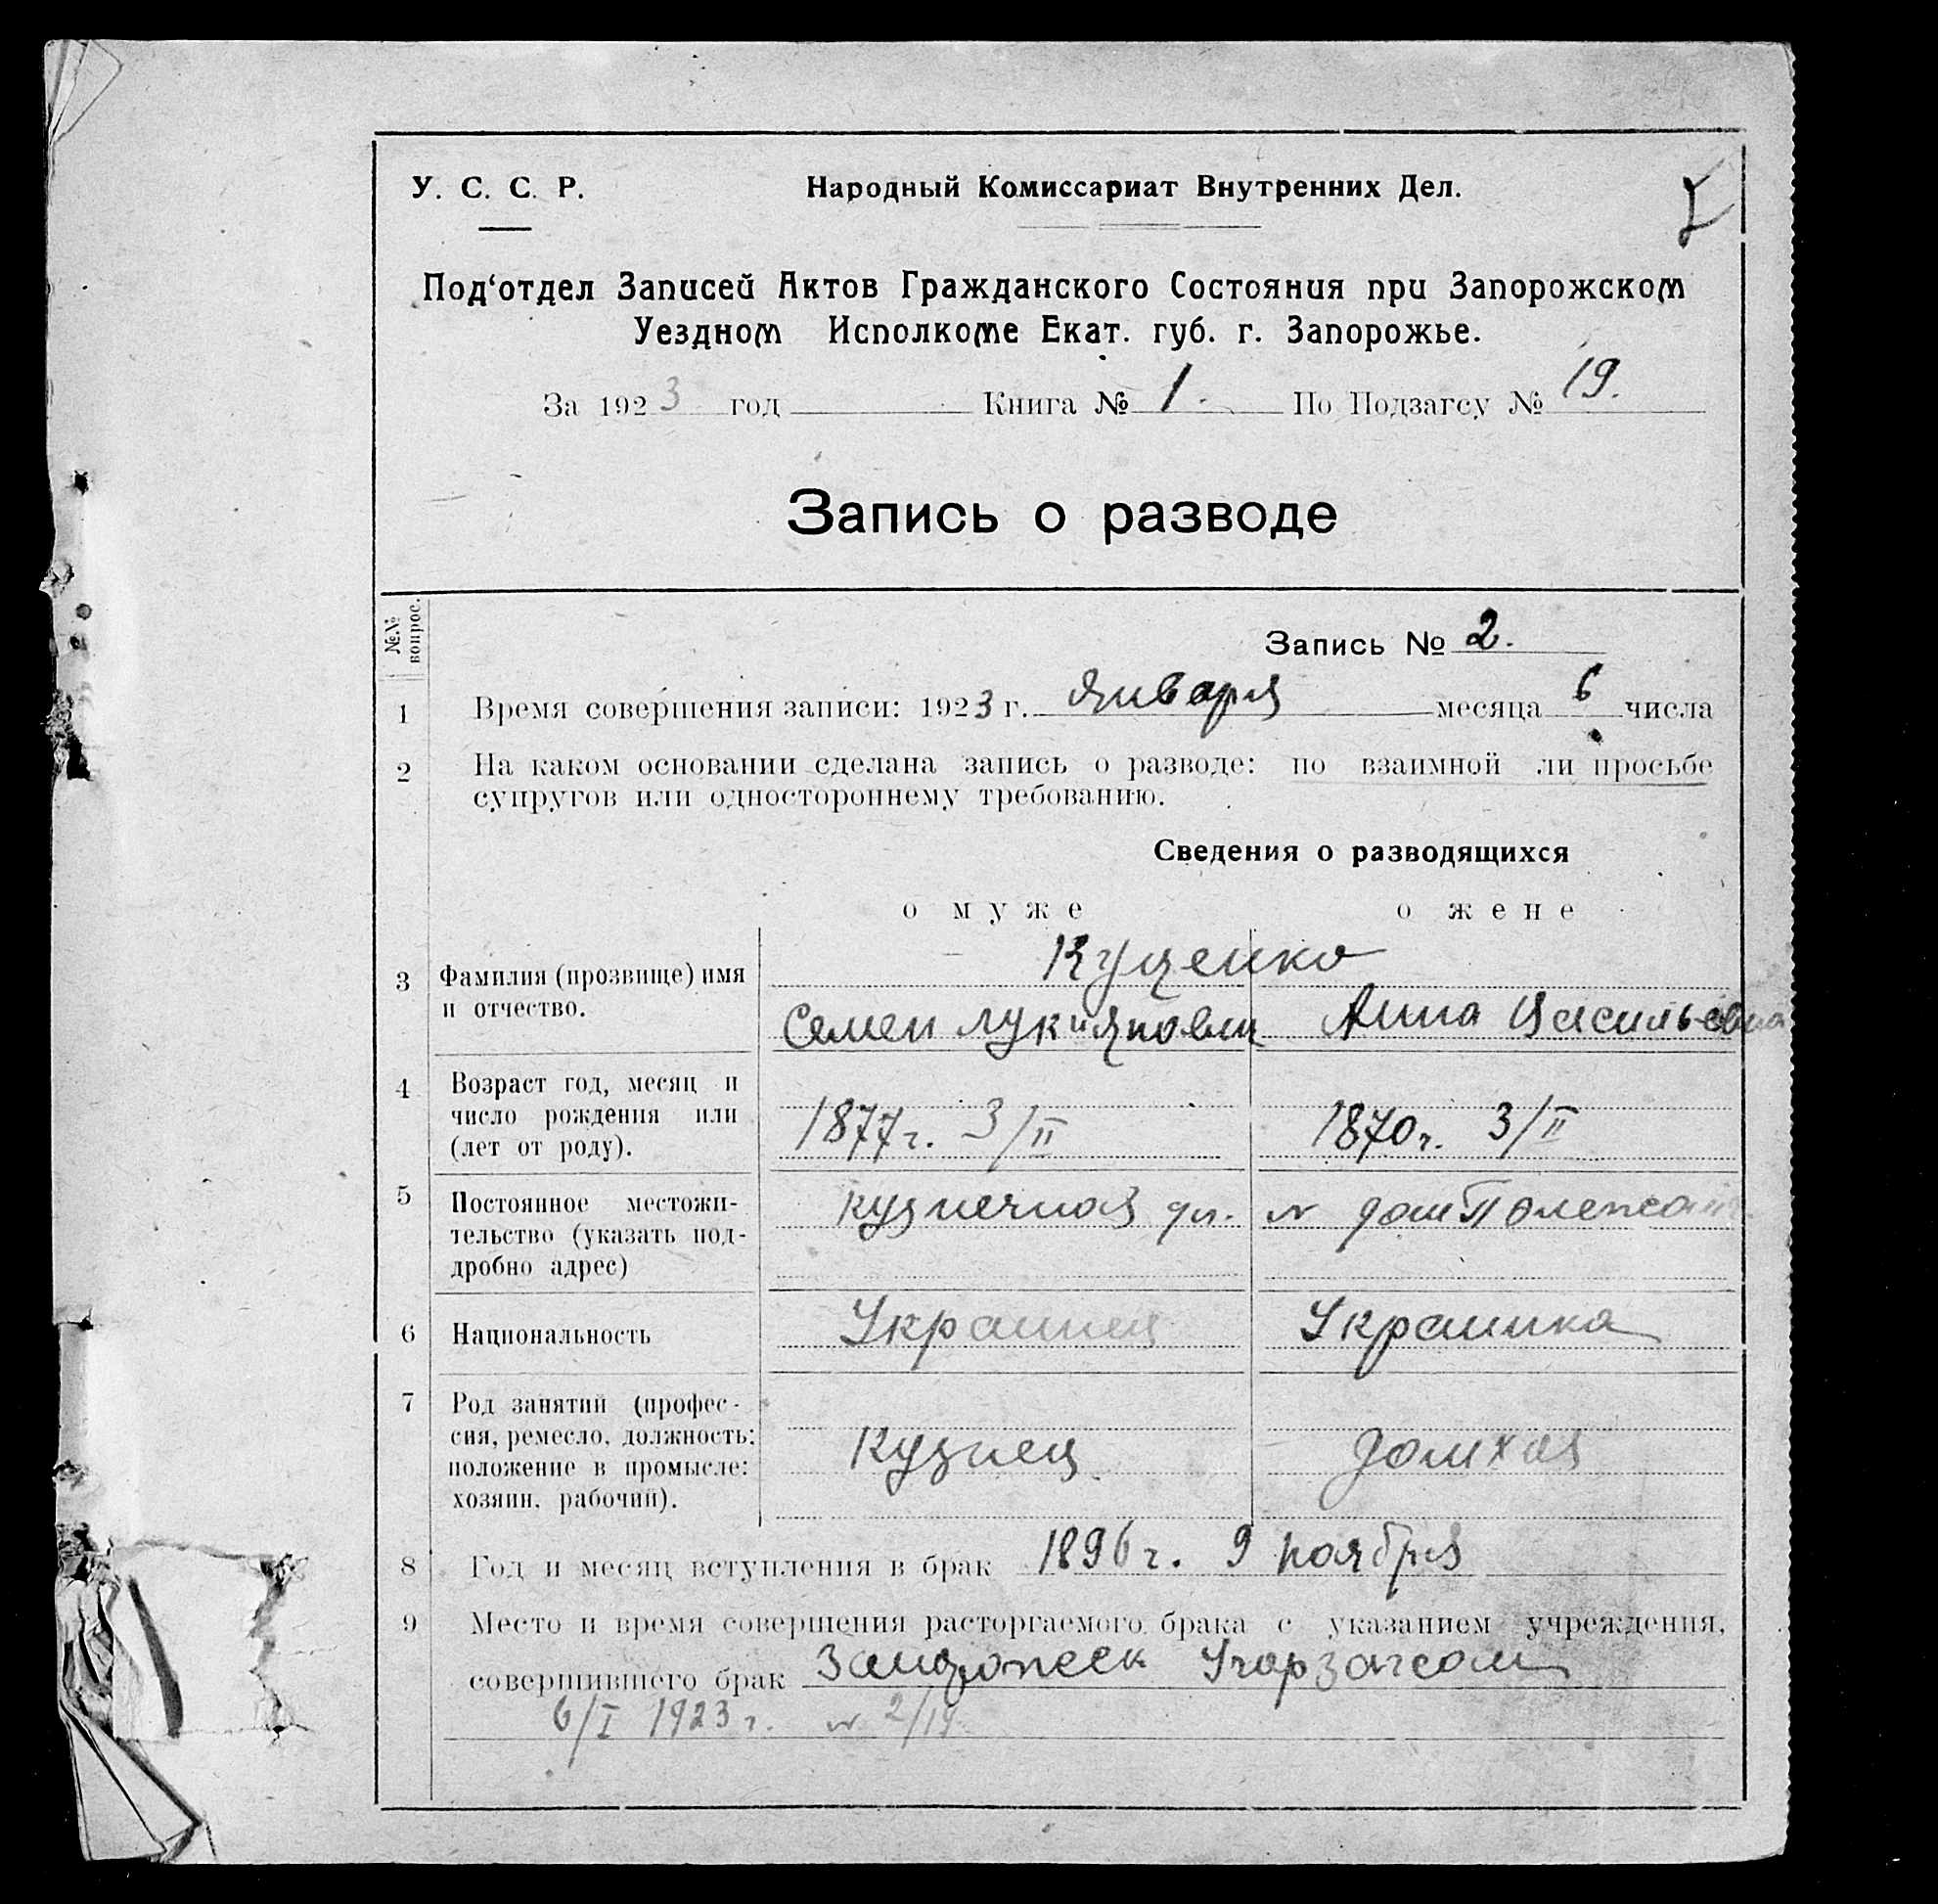 У. С. С. Р.
Народный Комиссариат Внутренних Дел.
Под‘отдел Записей Актов Гражданского Состояния при Запорожском
Уездном Исполкоме Екат. губ. г. Запорожье.
За 1923 год Книга № 1. По Подзагсу № 19.
Запись о разводе
№№ вопрос.
Запись № 2.
1 Время совершения записи: 1923 г. Января месяца 6 числа
2 На каком основании сделана запись о разводе: по взаимной ли просьбе
супругов или одностороннему требованию.
Сведения о разводящихся
о муже о жене
Куценко
3 Фамилия (прозвище) имя
и отчество.
Семен Лукиянович Анна Васильевна
4 Возраст год, месяц и
число рождения или
(лет от роду).
1877 г. 3/II 1870 г. 3/II
5 Постоянное местожи-
тельство (указать под-
дробно адрес)
Кузнечная ул. № дом
6 Национальность Украинец Украинка
7 Род занятий (профес-
сия, ремесло, должность:
положение в промысле:
хозяин, рабочий).
Кузнец домхоз
8 Год и месяц вступления в брак 1896 г. 9 ноября
9 Место и время совершения расторгаемого брака с указанием учреждения,
совершившего брак
6/I 1923 г. № 2/19